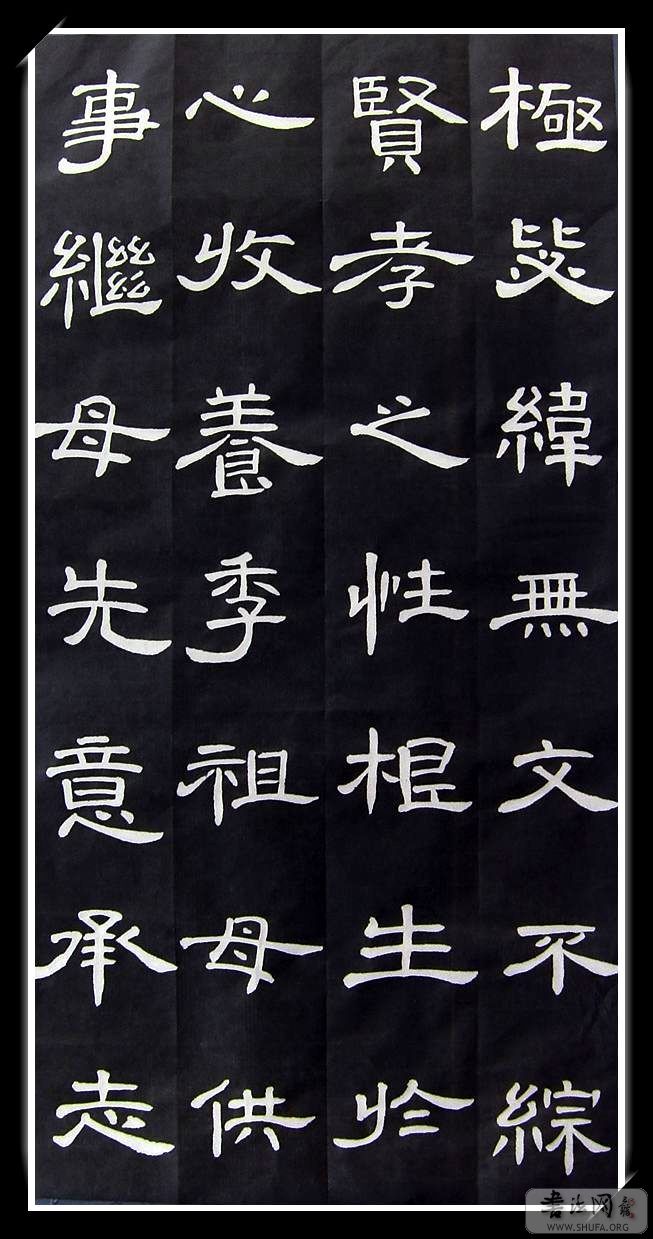 極毖緯無文不綜
賢孝之性根生於
心收養季祖母供
事繼母先意承志
書法网
WWW.SHUFA.ORG